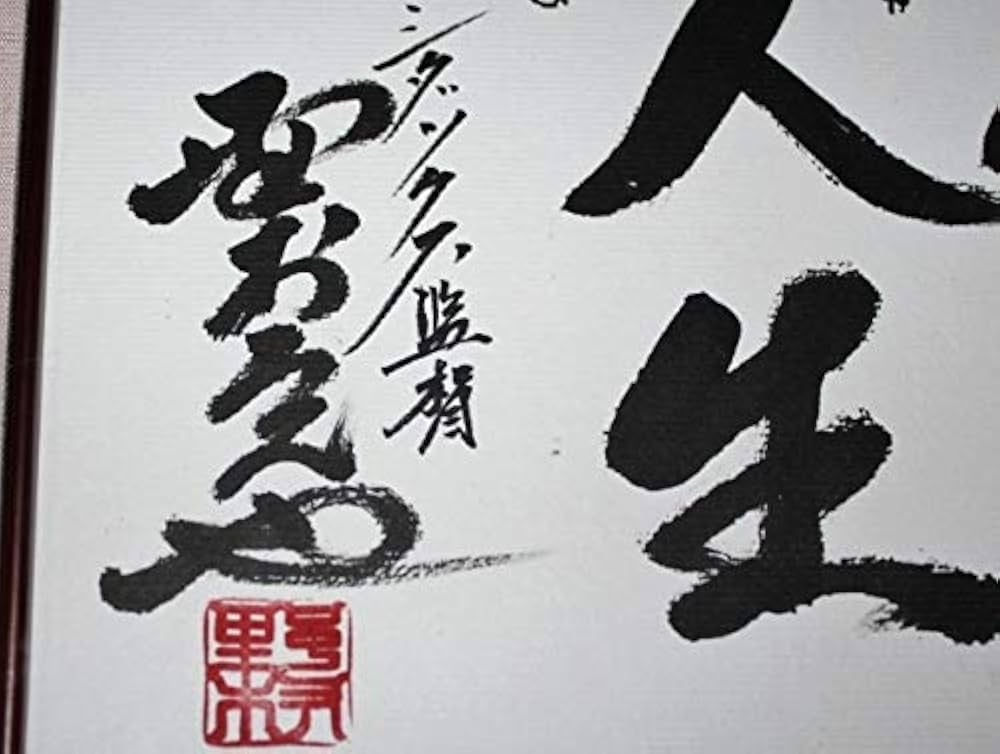 人生
シダックス監督
野村克也
野村